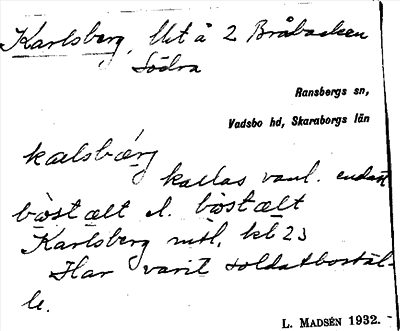 Karlsberg, Utå 2 Bråbacken
Södra
Ransbergs sn,
Vadsbo hd, Skaraborgs län
kallas vanl. endast
Karlsberg mtl. kl 23
Har varit soldatbostäl-
le.
L. MADSÉN 1932.